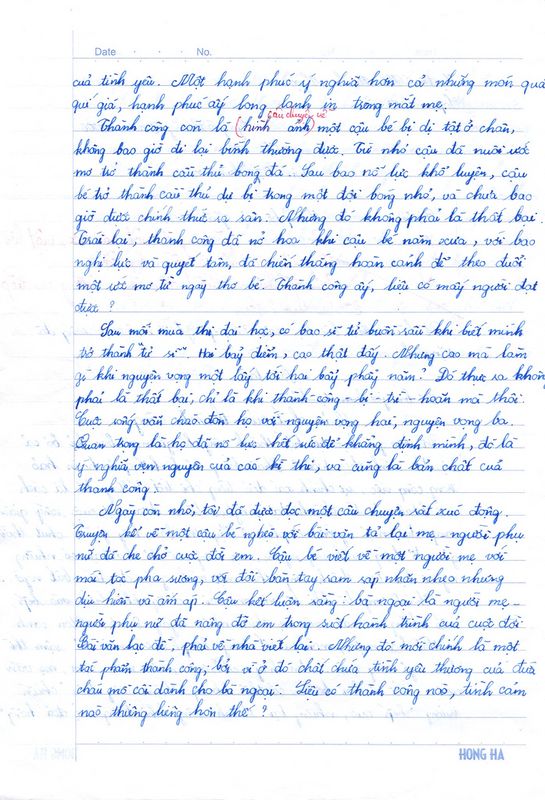 Date . . . No.
của tình yêu. Một hạnh phúc ý nghĩa hơn cả những món quà
quí giá, hạnh phúc ấy long lanh in trong mắt mẹ.
câu chuyện về
Thành công còn là (hình ảnh) một cậu bé bị dị tật ở chân,
không bao giờ đi lại bình thường được. Từ nhỏ cậu đã nuôi ước
mơ trở thành cầu thủ bóng đá. Sau bao nỗ lực khổ luyện, cậu
bé trở thành cầu thủ dự bị trong một đội bóng nhỏ, và chưa bao
giờ được chính thức ra sân. Nhưng đó không phải là thất bại.
Trái lại, thành công đã nở hoa khi cậu bé năm xưa, với bao
nghị lực và quyết tâm, đã chiến thắng hoàn cảnh để theo đuổi
một ước mơ từ ngày thơ bé. Thành công ấy, liệu có mấy người đạt
được ?
Sau mỗi mùa thi đại học, có bao sĩ tử buồn rầu khi biết mình
trở thành "tử sĩ". Hai bảy điểm, cao thật đấy. Nhưng cao mà làm
gì khi nguyện vọng một lấy tới hai bảy phẩy năm? Đó thực ra không
phải là thất bại, chỉ là khi thành - công - bị - trì - hoãn mà thôi.
Cuộc sống vẫn chào đón họ với nguyện vọng hai, nguyện vọng ba.
Quan trọng là họ đã nỗ lực hết sức để khẳng định mình, đó là
ý nghĩa vẹn nguyên của các kì thi, và cũng là bản chất của
thành công.
Ngày còn nhỏ, tôi đã được đọc một câu chuyện rất xúc động.
Truyện kể về một cậu bé nghèo với bài văn tả lại mẹ - người phụ
nữ đã che chở cuộc đời em. Cậu bé viết về một người mẹ với
mái tóc pha sương, với đôi bàn tay ram ráp nhăn nheo nhưng
dịu hiền và ấm áp. Cậu kết luận rằng: bà ngoại là người mẹ -
người phụ nữ đã nâng đỡ em trong suốt hành trình của cuộc đời.
Bài văn lạc đề, phải về nhà viết lại. Nhưng đó mới chính là một
tác phẩm thành công, bởi vì ở đó chất chứa tình yêu thương của đứa
cháu mồ côi dành cho bà ngoại. Liệu có thành công nào, tình cảm
nào thiêng liêng hơn thế ?
HONG HA